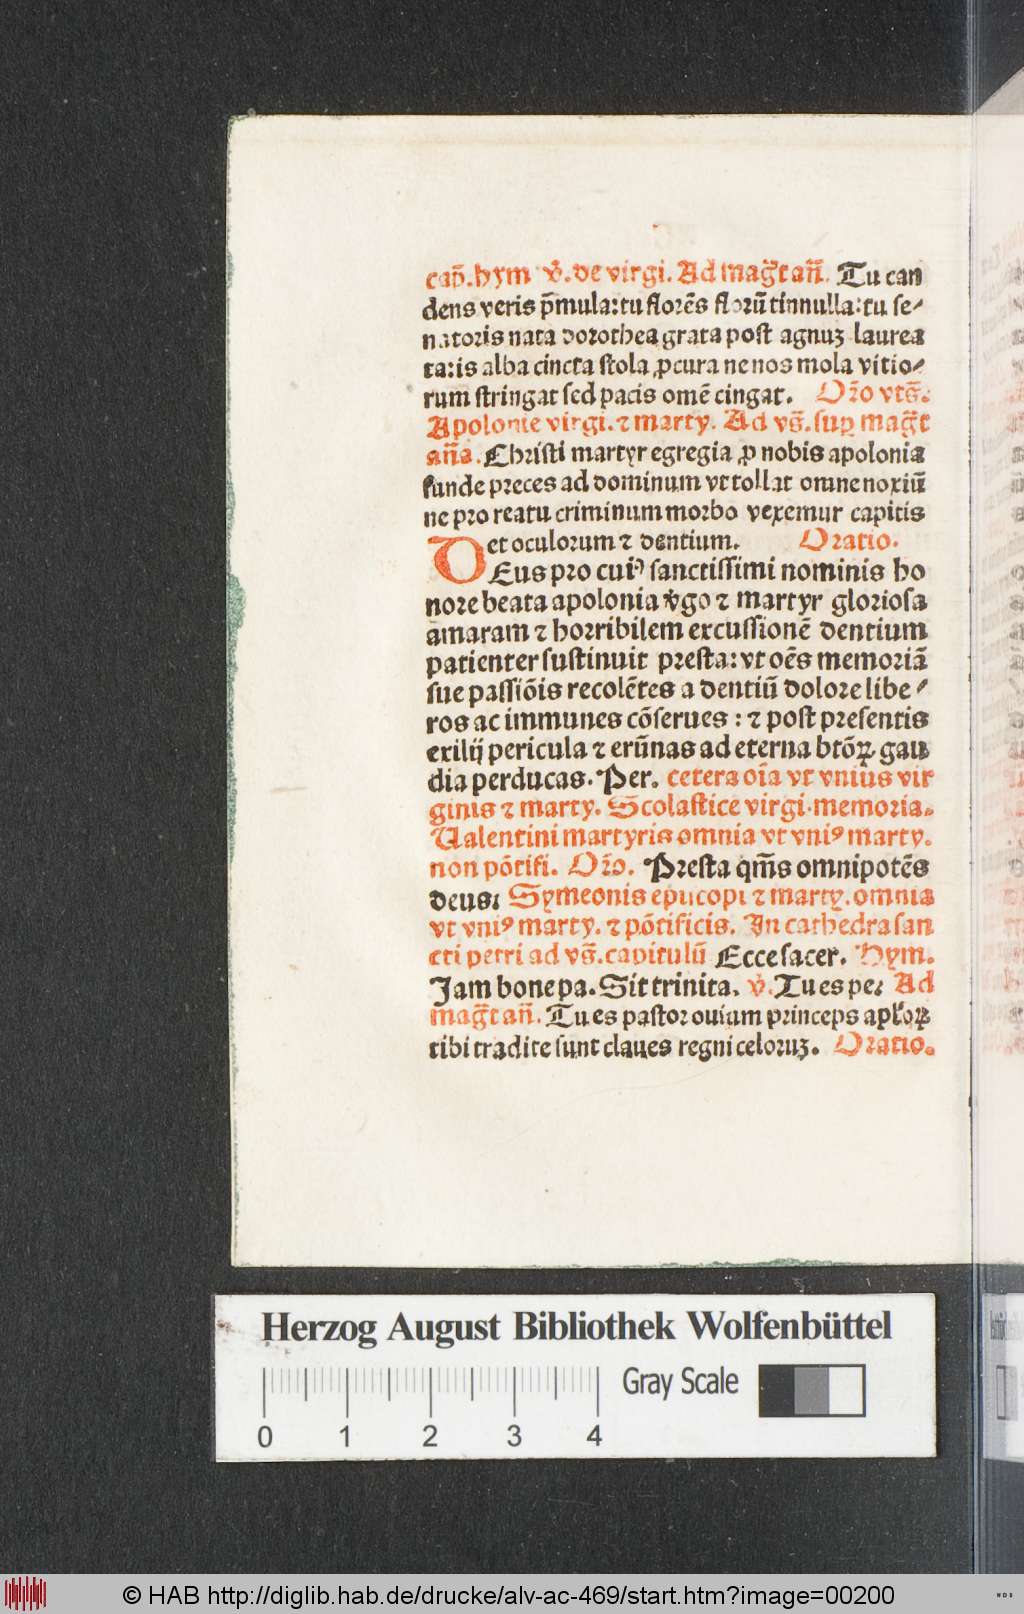 cap̄. hym v̊. de virgi. Ad mag̃t añ. Tu can
dens veris p̃mula: tu florẽs florũ tinnulla: tu se⸗
natoris nata dorothea grata post agnuʒ laurea
ta: is alba cincta stola ꝓcura ne nos mola vitio⸗
rum stringat sed pacis omẽ cingat. Or̃o vts̃.
Apolonie virgi. ⁊ marty. Ad vs̃. suꝑ mag̃t
aña. Christi martyr egregia ꝓ nobis apolonia
funde preces ad dominum vt tollat omne noxiũ
ne pro reatu criminum morbo vexemur capitis
et oculorum ⁊ dentium. Oratio.
DEus pro cuiꝰ sanctissimi nominis ho
nore beata apolonia v̊go ⁊ martyr gloriosa
amaram ⁊ horribilem excussionẽ dentium
patienter sustinuit presta: vt oẽs memoriã
sue passiõis recolẽtes a dentiũ dolore libe⸗
ros ac immunes cõserues: ⁊ post presentis
exilij pericula ⁊ erũnas ad eterna btõꝝ gau
dia perducas. Per. cetera oĩa vt vnius vir
ginis ⁊ marty. Scolastice virgi. memoria.
Ualentini martyris omnia vt vniꝰ marty.
non põtifi. Or̃o. Presta qm̃s omnipotẽs
deus: Symeonis episcopi ⁊ marty. omnia
vt vniꝰ marty. ⁊ põtificis. In cathedra san
cti petri ad vs̃. capitulũ Ecce sacer. Hym.
Jam bone pa. Sit trinita. v̊. Tu es pe: Ad
mag̃t añ. Tu es pastor ouium princeps apl̓oꝝ
tibi tradite sunt claues regni celoruʒ. Oratio.
Herzog August Bibliothek Wolfenbüttel
Gray Scale
0 1 2 3 4
© HAB http://diglib.hab.de/drucke/alv-ac-469/start.htm?image=00200